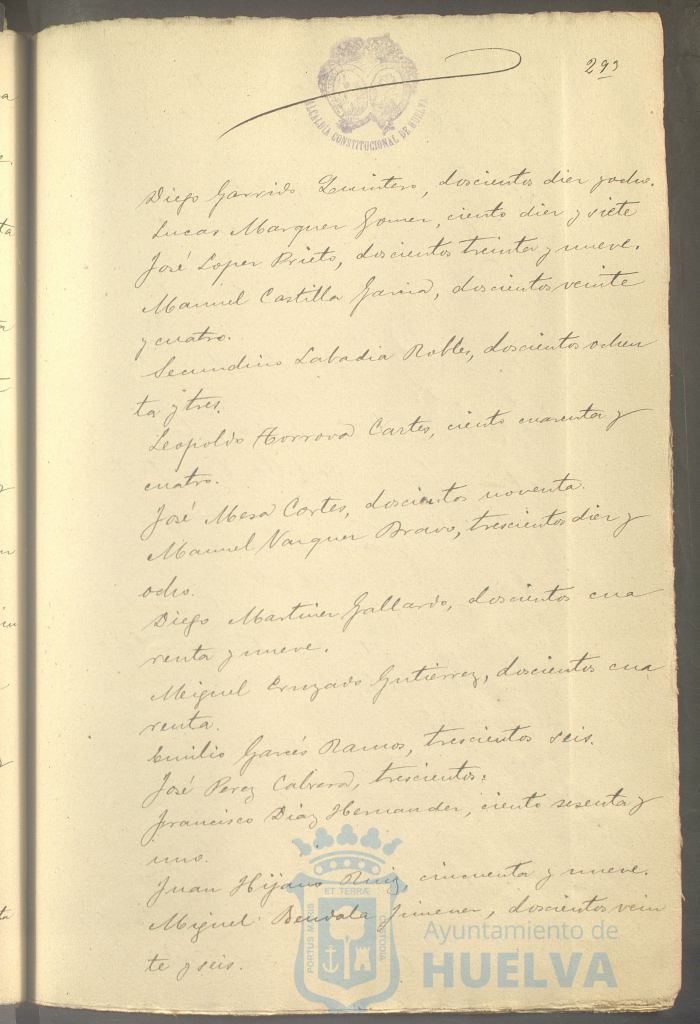 293
ALCALDÍA CONSTITUCIONAL DE HUELVA
Diego Garrido Quintero, doscientos diez y ocho.
Lucas Marquez Gomez, ciento diez y siete
José Lopez Prieto, doscientos treinta y nueve.
Manuel Castilla Garcia, doscientos veinte
y cuatro.
Secundino Labadia Robles, doscientos ochen
ta y tres.
Leopoldo Cortes, ciento cuarenta y
cuatro.
José Mesa Cortes, doscientos noventa.
Manuel Vazquez Bravo, trescientos diez y
ocho.
Diego Martinez Gallardo, doscientos cua
renta y nueve.
Miguel Cruzado Gutiérrez, doscientos cua
renta.
Emilio Garcés Ramos, trescientos seis.
José Perez Cabrera, trescientos.
Francisco Diaz Hernandez, ciento sesenta y
uno.
Juan Hijano Ruiz, cincuenta y nueve.
Miguel Bendala Jimenez, doscientos vein
te y seis.
ET TERRÆ
PORTUS MARIS
CUSTODIA
Ayuntamiento de
HUELVA